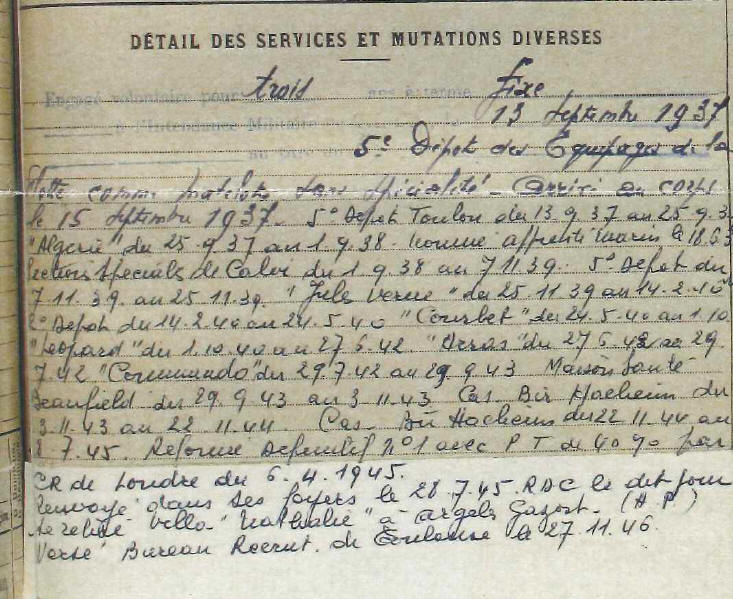 DÉTAIL DES SERVICES ET MUTATIONS DIVERSES
Engagé volontaire pour trois ans à terme fixe
à l'Intendance Militaire 13 Septembre 1937
au 5e Dépot des Equipages de la
Flotte comme matelot sans spécialité - Arrivé au corps
le 15 Septembre 1937. 5e Depot Toulon du 13 9 37 au 25 9 3
"Algerie" du 25 9 37 au 1 9 38. nommé apprenti marin le 18.6 3
Sections Speciales de Calvi du 1 9 38 au 7 11 39. 5e Depot du
7 11 39 au 25 11 39 "Jules Verne" du 25 11 39 au 14-2-40
2e Depot du 14.2.40 au 24.5.40 "Courbet" du 24.5.40 au 1.10
"Leopard" du 1.10.40 au 27 6 42. du 27 6 42 au 29
7.42 "Commando" du 29 7 42 au 29 9 43 Maison Santé
Beaufield du 29 9 43 au 3 11 43 Cas. Bir Hacheim du
3 11 43 au 22 11 44. Cas. Bir Hacheim du 22 11 44 au
8 7.45. Reforme Definitif n°1 avec P T de 40 % par
CR de Londre du 6.4.1945.
Renvoyé dans ses foyers le 28.7.45. RDC le dit jour
se retire villa "Nathalie" à Argeles Gazost. (H.P.)
Versé Bureau Recrut. de Toulouse le 27.11.46.